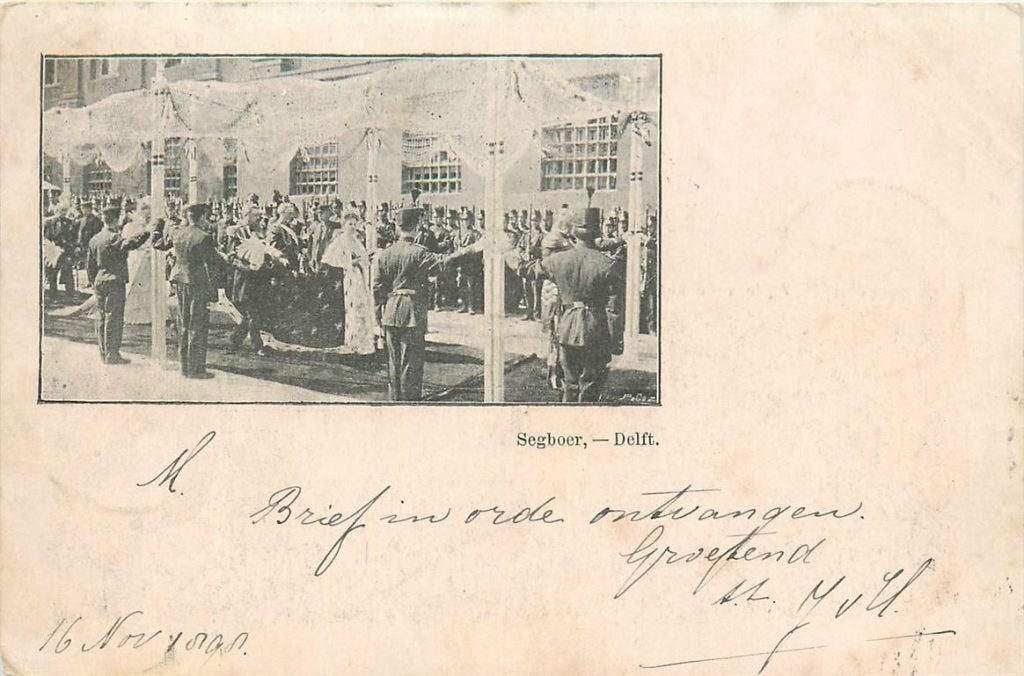 Segboer, — Delft.
M.
Brief in orde ontvangen.
Groetend
t.t. J v H.
16 Nov 1898.